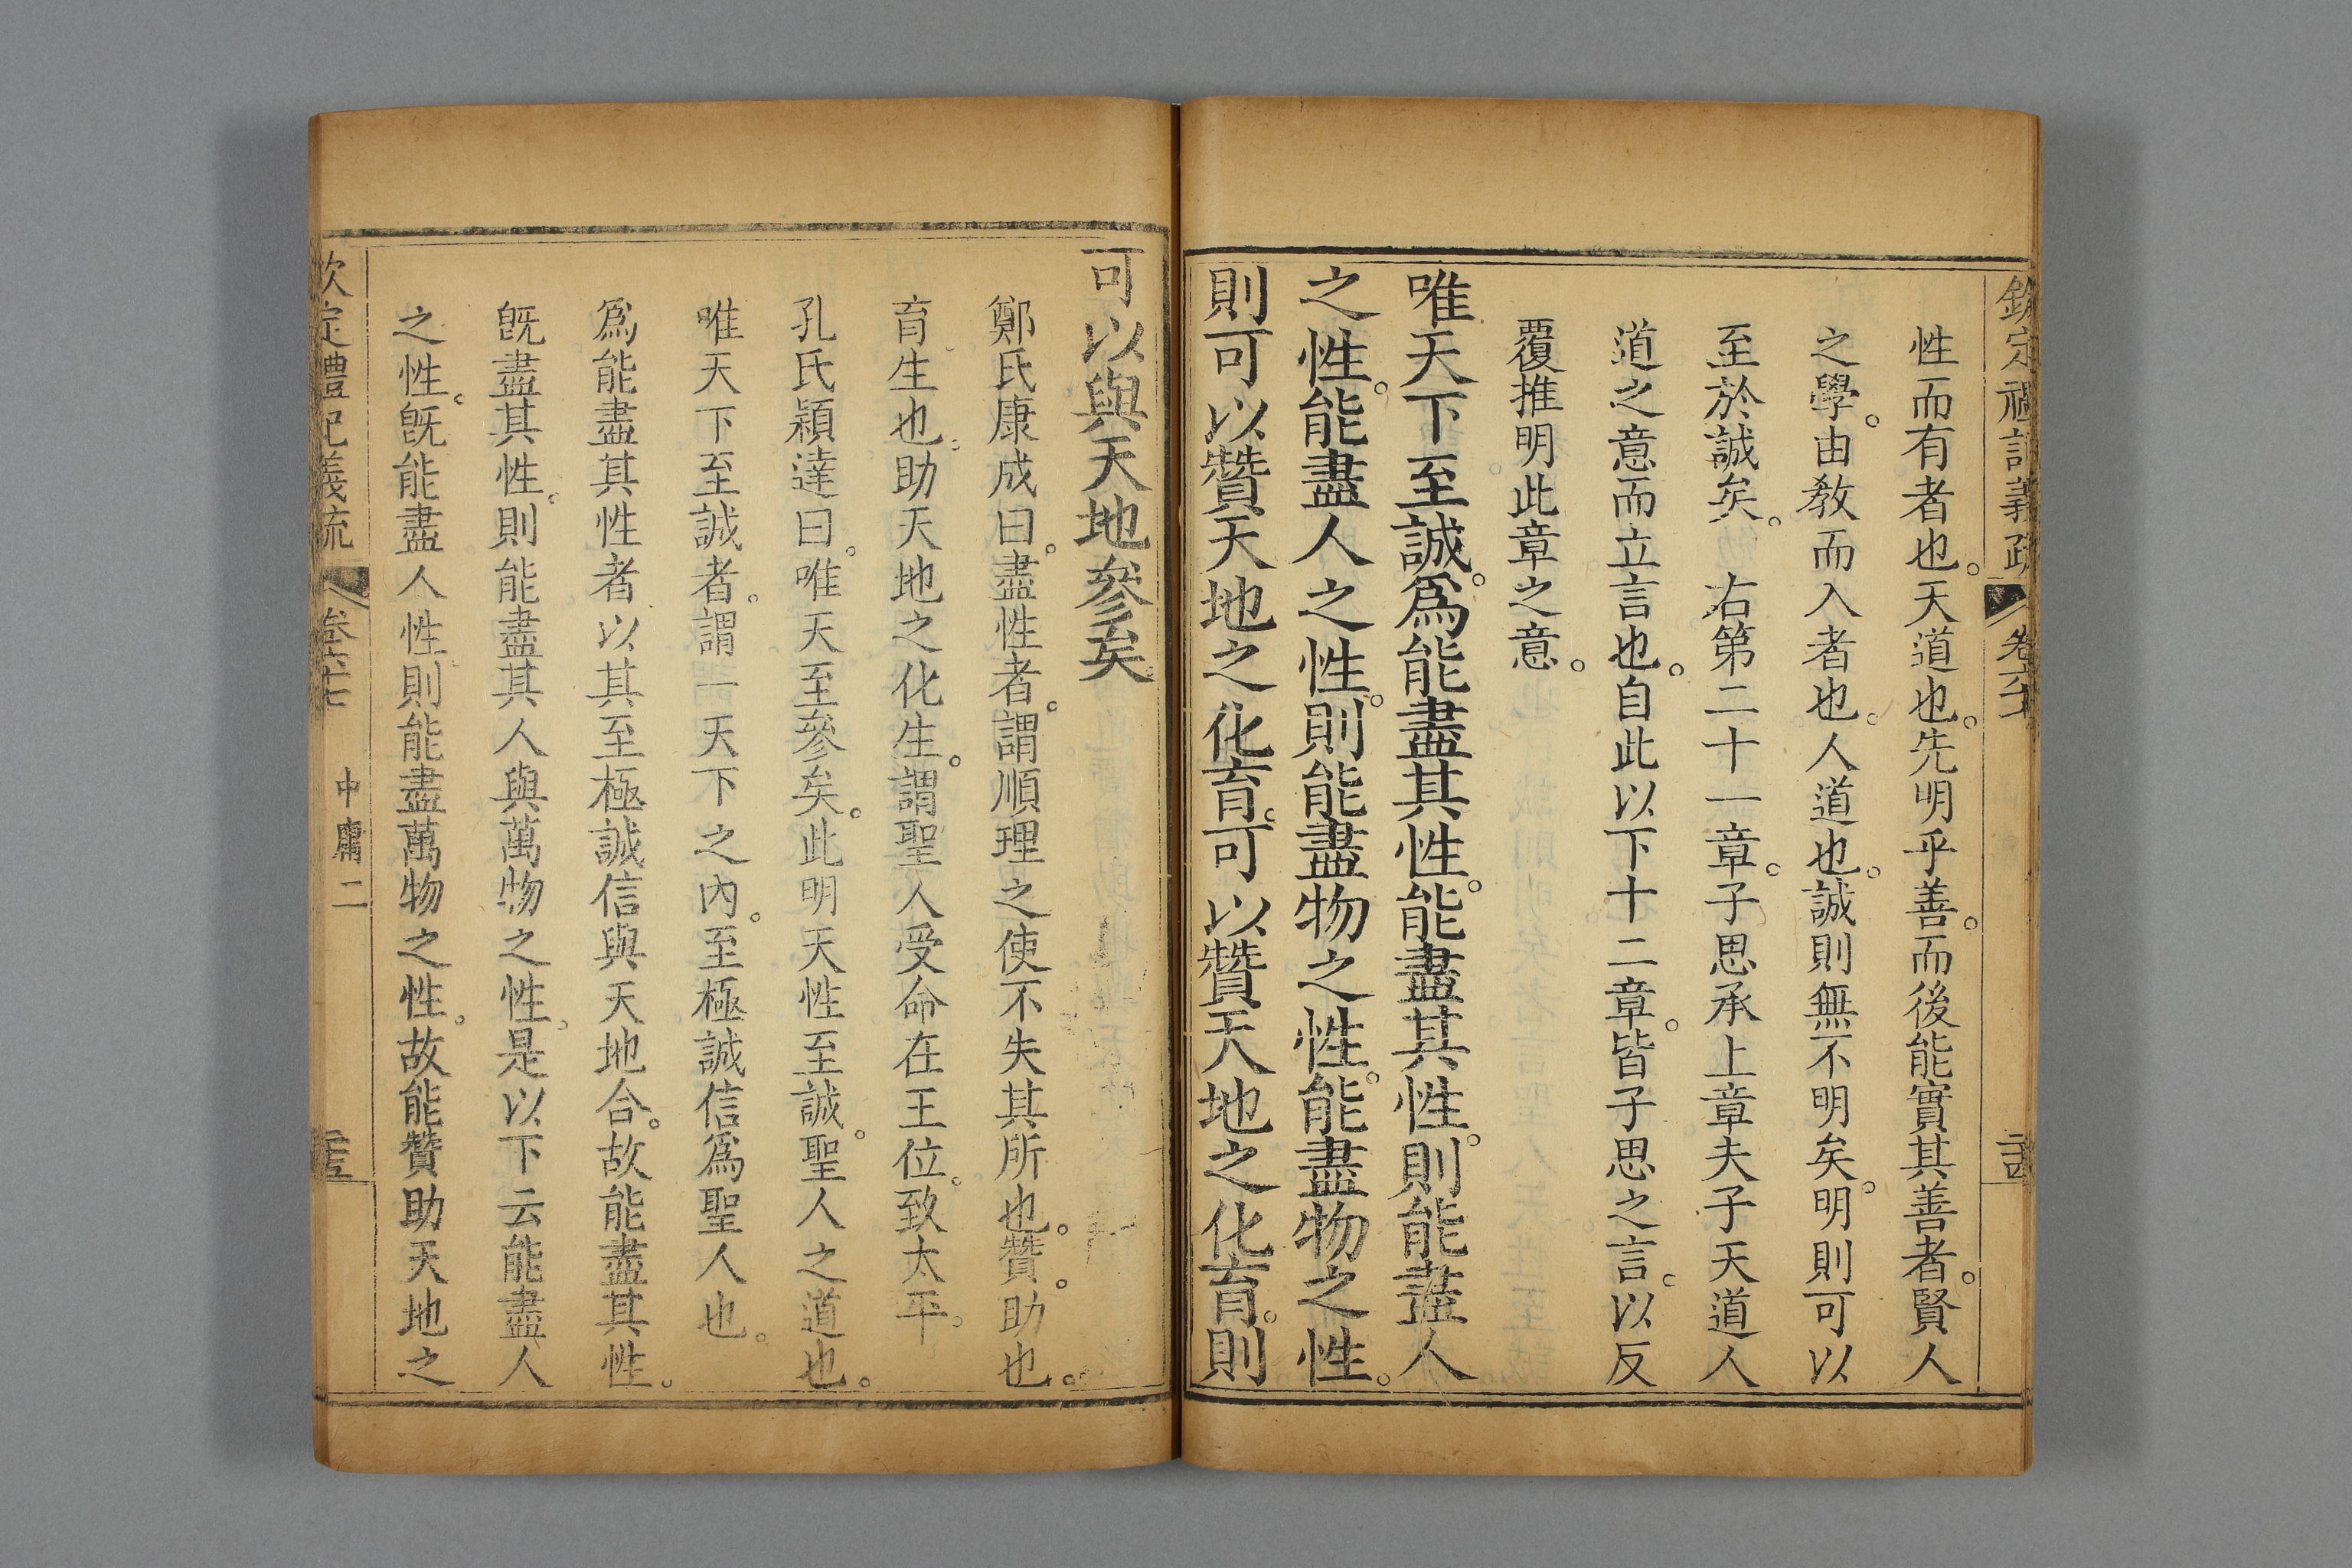 欽定禮記義疏 卷六十七
性而有者也。天道也。先明乎善。而後能實其善者。賢人
之學。由敎而入者也。人道也。誠則無不明矣。明則可以
至於誠矣。 右第二十一章。子思承上章夫子天道人
道之意而立言也。自此以下十二章。皆子思之言。以反
覆推明此章之意。
唯天下至誠。爲能盡其性。能盡其性。則能盡人
之性。能盡人之性。則能盡物之性。能盡物之性。
則可以贊天地之化育。可以贊天地之化育。則
可以與天地參矣
鄭氏康成曰。盡性者。謂順理之使不失其所也。贊。助也。
育生也。助天地之化生。謂聖人受命在王位。致太平。
孔氏穎達曰。唯天至參矣。此明天性至誠。聖人之道也。
唯天下至誠者。謂一天下之內。至極誠信爲聖人也。
爲能盡其性者以其至極誠信與天地合。故能盡其性。
旣盡其性。則能盡其人與萬物之性。是以下云能盡人
之性。旣能盡人性則能盡萬物之性。故能贊助天地之
欽定禮記義疏 卷六十七 中庸二